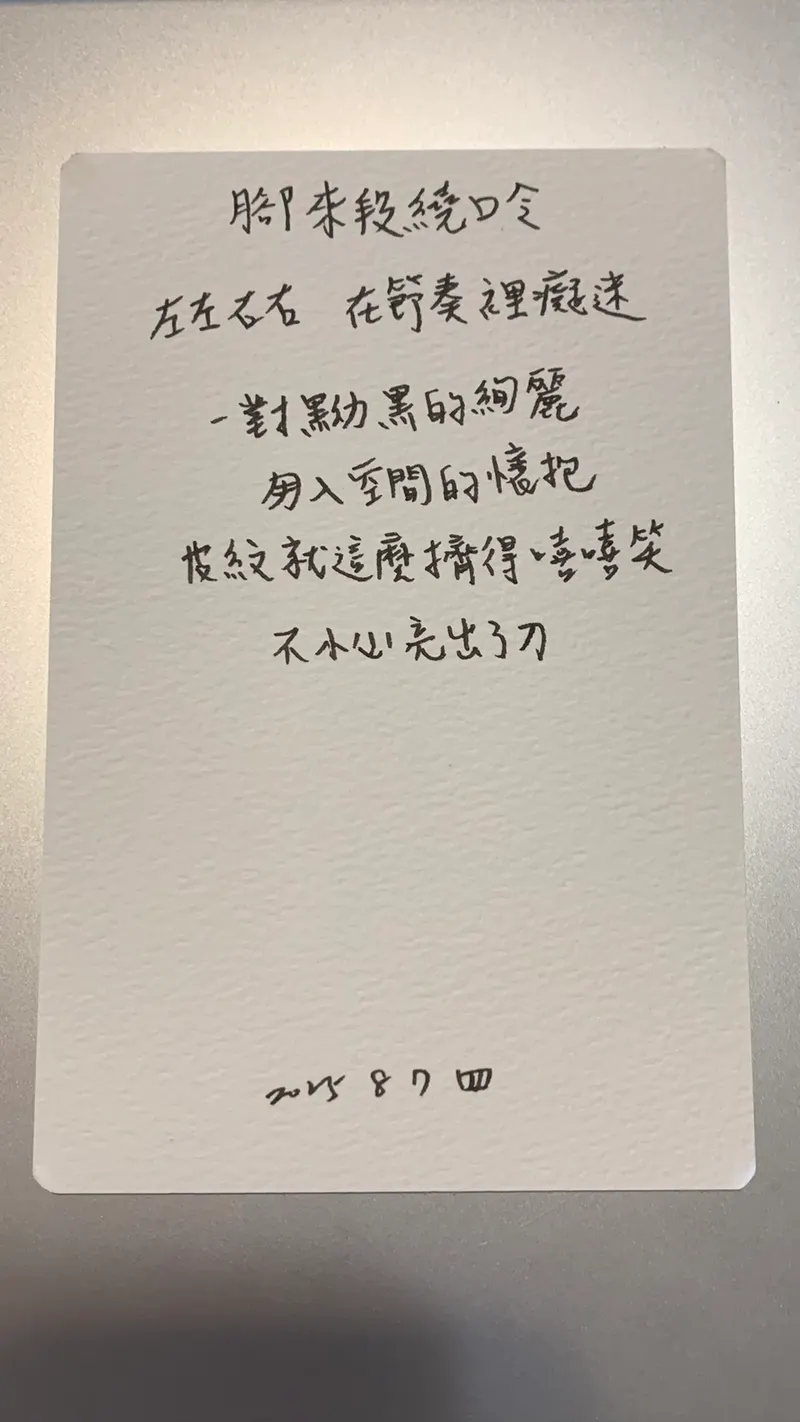 腳來段繞口令
左左右右 在節奏裡癡迷
一對黝黑的絢麗
入空間的懷抱
皮紋就這麼擠得嘻嘻笑
不小心亮出了刀
2025 8 7 四